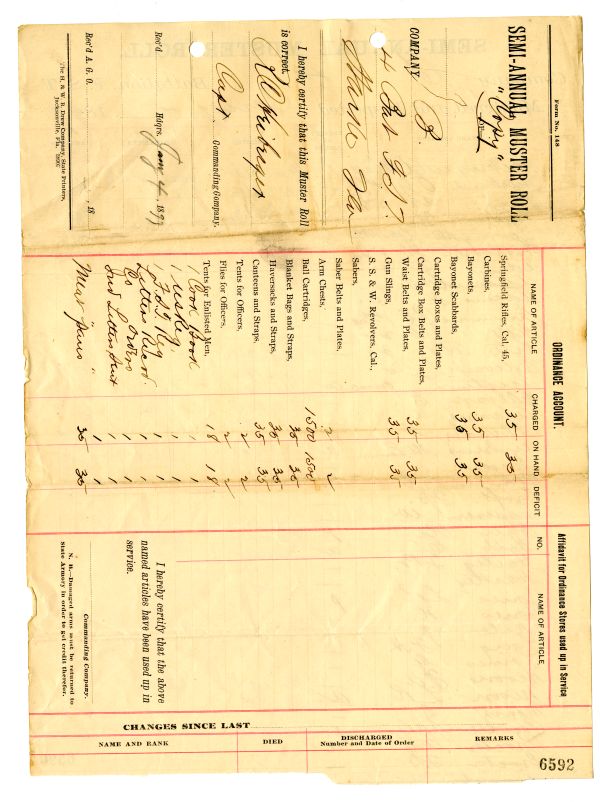 Form No. 148
SEMI-ANNUAL MUSTER ROLL
"Copy"
OF
COMPANY B
4 Bat F. S. T.
Starke Fla
I hereby certify that this Muster Roll
is correct.
Capt. Commanding Company.
Rec'd Hdqrs. Jany 4 1899
Rec'd A. G. O. , 18
The H. & W. B. Drew Company, State Printers,
Jacksonville, Fla.
ORDINANCE ACCOUNT.
NAME OF ARTICLE CHARGED ON HAND DEFICIT
Springfield Rifles, Cal. 45, 35 35
Carbines,
Bayonets, 35 35
Bayonet Scabbards, 35 35
Cartridge Boxes and Plates,
Cartridge Box Belts and Plates,
Waist Belts and Plates, 35 35
Gun Slings, 35 35
S. S. & W. Revolvers, Cal.,
Sabers,
Saber Belts and Plates,
Arm Chests, 2 2
Ball Cartridges, 1500 1500
Blanket Bags and Straps, 35 35
Haversacks and Straps, 35 35
Canteens and Straps, 35 35
Tents for Officers, 2 2
Flies for Officers, 2 2
Tents for Enlisted Men, 18 18
1 Cook Book 1 1
1 1
1 1
Letters 1 1
Do Orders 1 1
Letters 1 1
Meat 35 35
Affidavit for Ordinance Stores used up in Service
NO. NAME OF ARTICLE
I hereby certify that the above
named articles have been used up in
service.
Commanding Company.
N. B.—Damaged arms must be returned to
State Armory in order to get credit therefor.
CHANGES SINCE LAST
NAME AND RANK DIED DISCHARGED REMARKS
Number and Date of Order
6592